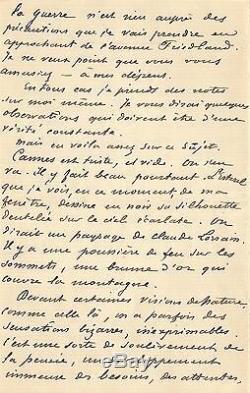 la guerre n'est rien auprès des
précautions que je vais prendre en
approchant de l'avenue Friedland.
Je ne veut point que vous vous
amusiez — à mes dépens.
En tous cas je prends des notes
sur moi même. Je vous dirais quelques
observations qui doivent être d'une
vérité constante.
mais en voilà assez sur ce sujet.
Cannes est triste, est vide. On s'en
va. Il y fait beau pourtant. L'Esterel
que je vois, en ce moment de ma
fenêtre, dessine en noir sa silhouette
dentelée sur le ciel écarlate. On
dirait un paysage de Claude Lorrain.
Il y a une poussière de feu sur les
sommets, une brume d'or qui
couvre la montagne.
Devant certaines visions de nature,
comme celle là, on a parfois des
sensations bizarres, inexprimables.
C'est une sorte de soulèvement de
la pensée, un
immense des besoins, des attentes.
ebay